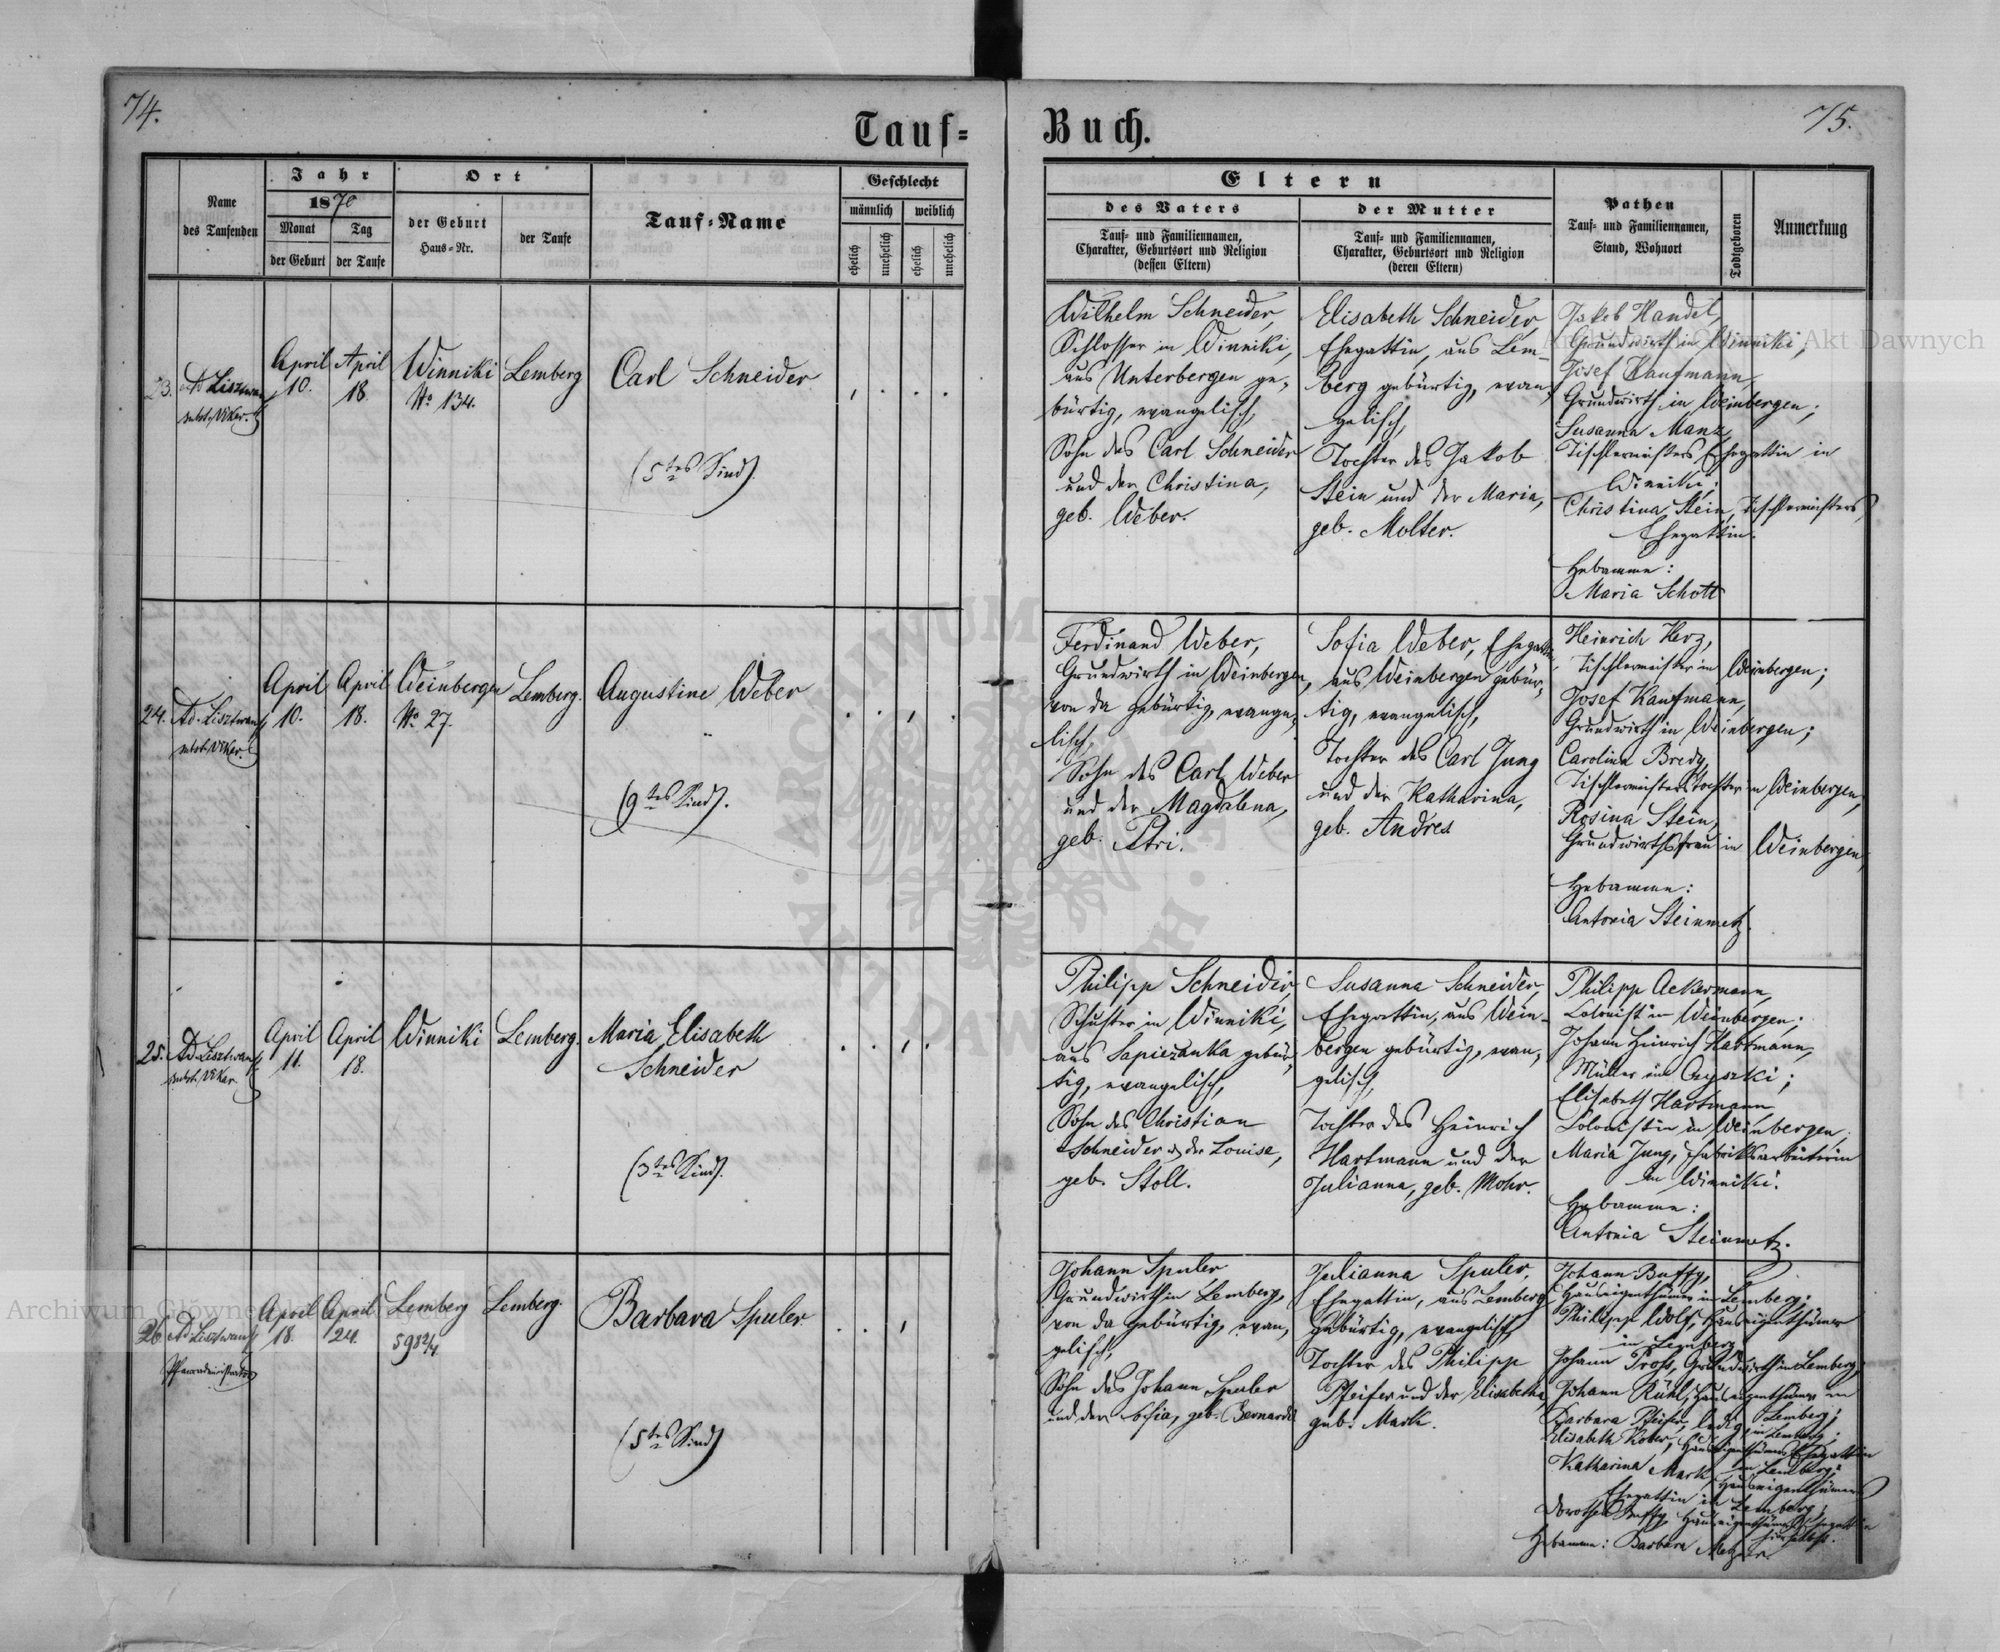 74.
75.
Tauf-
Buch.
Name
des Taufenden
Jahr
1870
Monat
der Geburt
Tag
der Taufe
Ort
der Geburt
Haus-Nr.
der Taufe
Tauf-Name
Geschlecht
männlich
weiblich
ehelich
unehelich
ehelich
unehelich
Eltern
des Vaters
Tauf- und Familiennamen,
Charakter, Geburtsort und Religion
(dessen Eltern)
der Mutter
Tauf- und Familiennamen,
Charakter, Geburtsort und Religion
(deren Eltern)
Pathen
Tauf- und Familiennamen,
Stand, Wohnort
Todtgeboren
Anmerkung
23.
Ad Lisztwan
subst. Vikar.
April
10.
April
18.
Winniki
No. 134.
Lemberg
Carl Schneider
(5tes Kind).
Wilhelm Schneider,
Schlosser in Winniki,
aus Unterbergen ge-
bürtig, evangelisch,
Sohn des Carl Schneider
und der Christina,
geb. Weber.
Elisabeth Schneider,
Ehegattin, aus Lem-
berg gebürtig, evan-
gelisch,
Tochter des Jakob
Stein und der Maria,
geb. Molter.
Jakob Handel,
Grundwirth in Winniki;
Josef Kaufmann,
Grundwirth in Weinbergen;
Susanna Manz,
Tischlermeisters Ehegattin in
Winniki;
Christina Stein, Tischlermeisters
Ehegattin.
Hebamme:
Maria Schott
24.
Ad. Lisztwan
subst. Vikar.
April
10.
April
18.
Weinbergen
No. 27.
Lemberg.
Augustine Weber
(9tes Kind).
Ferdinand Weber,
Grundwirth in Weinbergen,
von da gebürtig, evange-
lisch,
Sohn des Carl Weber
und der Magdalena,
geb. Petri.
Sofia Weber, Ehegattin,
aus Weinbergen gebür-
tig, evangelisch,
Tochter des Carl Jung
und der Katharina,
geb. Andres
Heinrich Herz,
Tischlermeister in Weinbergen;
Josef Kaufmann,
Grundwirth in Weinbergen;
Carolina Bredy,
Tischlermeisterstochter in Weinbergen,
Rosina Stein,
Grundwirthsfrau in Weinbergen,
Hebamme:
Antonia Steinmetz.
25.
Ad Lisztwan
subst. Vikar.
April
11.
April
18.
Winniki
Lemberg.
Maria Elisabeth
Schneider
(3tes Kind).
Philipp Schneider,
Schuster in Winniki,
aus Sapiezanka gebür-
tig, evangelisch,
Sohn des Christian
Schneider & der Louise,
geb. Stoll.
Susanna Schneider,
Ehegattin, aus Wein-
bergen gebürtig, evan-
gelisch,
Tochter des Heinrich
Hartmann und der
Julianna, geb. Mohr.
Philipp Ackermann,
Colonist in Weinbergen;
Johann Heinrich Hartmann,
Müller in Czyszki;
Elisabeth Hartmann
Colonistin in Weinbergen;
Maria Jung, Fabrikkarbeiterin
in Winniki.
Hebamme:
Antonia Steinmetz.
26.
Ad Lisztwan
Pfarradministrator
April
18.
April
24.
Lemberg
598 2/4
Lemberg.
Barbara Spuler
(5tes Kind)
Johann Spuler
Grundwirth in Lemberg,
von da gebürtig, evan-
gelisch,
Sohn des Johann Spuler
und der Sofia, geb. Bernardt
Julianna Spuler,
Ehegattin, aus Lemberg
gebürtig, evangelisch,
Tochter des Philipp
Pfeifer und der Elisabetha,
geb. Mark.
Johann Buffy,
Hauseigenthümer in Lemberg;
Philipp Wolf, Hauseigenthümer
in Lemberg,
Johann Pross, Grundwirth in Lemberg,
Johann Rühl, Hauseigenthümer in
Lemberg;
Barbara Pfeifer, ledig, in Lemberg;
Elisabeth Kober, Hauseigenthümers Ehegattin
in Lemberg;
Katharina Mark, Hauseigenthümers
Ehegattin in Lemberg;
Dorothea Buffy, Hauseigenthümers Ehegattin
hierselbst.
Hebamme: Barbara
Archiwum Główne Akt Dawnych